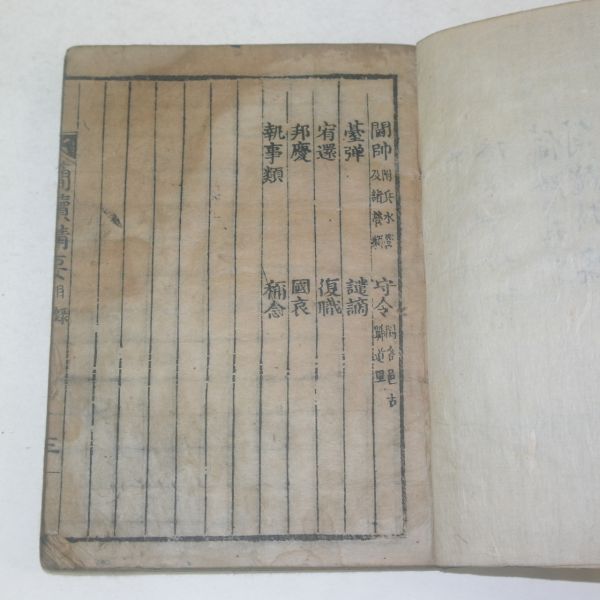 閫帥 附兵水營及諸營類 守令 附各邑古號道里
臺彈 譴謫
宥還 復職
邦慶 國哀
執事類 稱念
簡牘精要 目錄 三